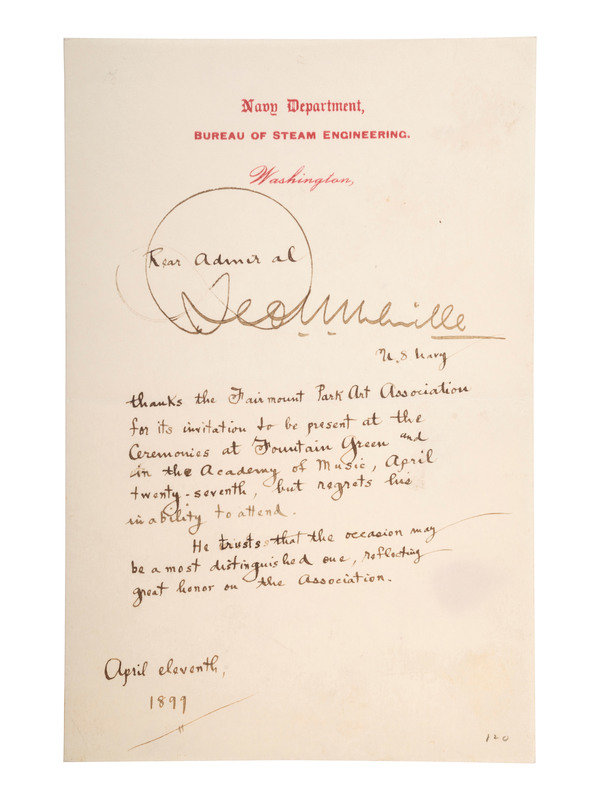 Navy Department,
BUREAU OF STEAM ENGINEERING.
Washington,
Rear Admiral
Geo W Melville
U.S Navy
thanks the Fairmount Park Art Association
for its invitation to be present at the
Ceremonies at Fountain Green and
in the Academy of Music, April
twenty-seventh, but regrets his
inability to attend.
He trusts that the occasion may
be a most distinguished one, reflecting
great honor on the Association.
April eleventh,
1899
120